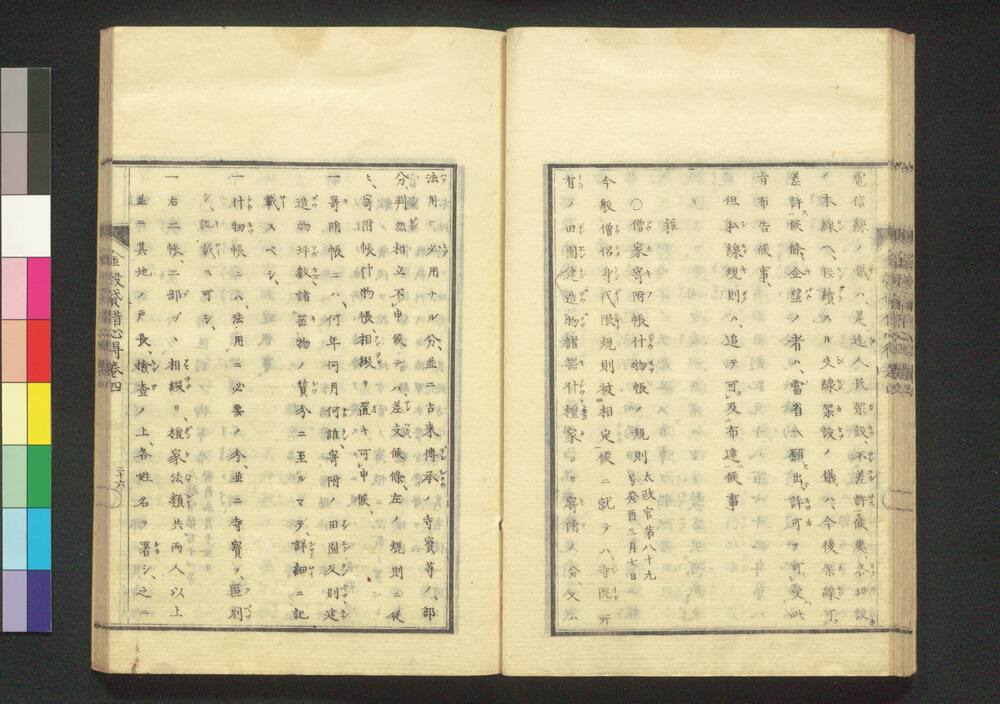 電信線ノ儀ハ、是迄人民架設、不差許候處、各切設
本線ヘ、接續スル支線架設ノ儀ハ、今後架線可
差許候條、企望ノ者ハ、當省ヘ願出許可ヲ可受、此
旨布告候事、
但私線規則ハ、追テ可及布達候事
雜
○僧家寄附帳什物帳ノ規則 太政官第八十九
號癸酉三月七日
今般僧侶身代限規則被相定候ニ就テハ、寺院所
有ノ田園建造物諸器什檀家ヨリ寄附ノ分、又ハ
法用ニ必用ナル分、並ニ古来傳承ノ寺寶等ノ部
分、判然相立不申候テハ差支候條、左ノ規則ニ從
ヒ、寄附帳什物帳、相綴リ置キ可申候、
一 寄附帳ニハ、何年何月何誰、寄附ノ田園及別建
造物坪數諸器物ノ質分ニ至ルマデ、詳細ニ記
載スベシ、
一 什物帳ニハ、法用ニ必要ノ分、並ニ寺寶ヲ、區別
シ、記載ス可シ、
一 右二帳、二部ヅヽ相綴リ、檀家法類共両人以上
並ニ其地ノ戸長、檢査ノ上、各姓名ヲ署シ、之ニ
金穀貸借心得卷四
二十六